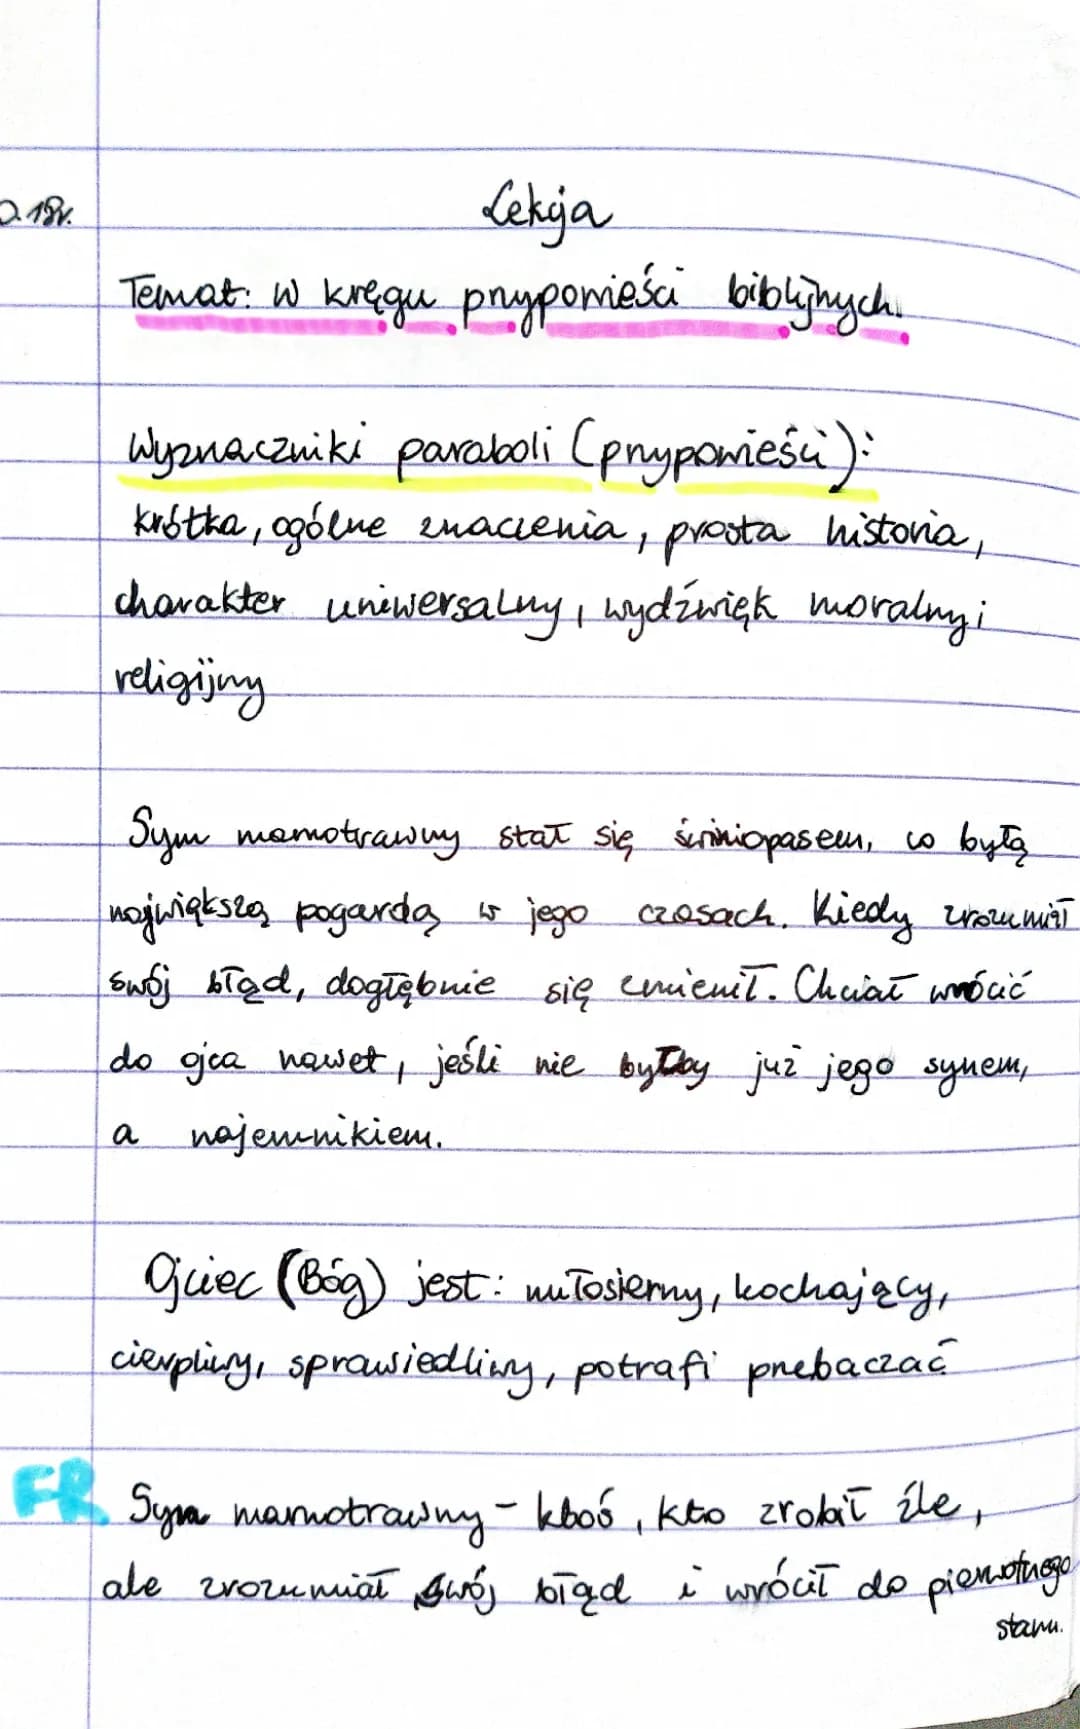 18r.
Lekcja
Temat: W kręgu przypowieści biblijnych.
Wyznaczniki paraboli (przypowieści):
krótka, ogólne znaczenia, prosta historia,
charakter uniwersalny, wydźwięk moralny i
religijny
Syn marnotrawny stał się świniopasem, co było
największą pogardą w jego czasach. Kiedy zrozumiał
swój błąd, dogłębnie się zmienił. Chciał wrócić
do ojca nawet, jeśli nie byłby już jego synem,
a najemnikiem.
Ojciec (Bóg) jest: miłosierny, kochający,
cierpliwy, sprawiedliwy, potrafi przebaczać
FR Syn marnotrawny - ktoś, kto zrobił źle,
ale zrozumiał swój błąd i wrócił do pierwotnego
stanu.